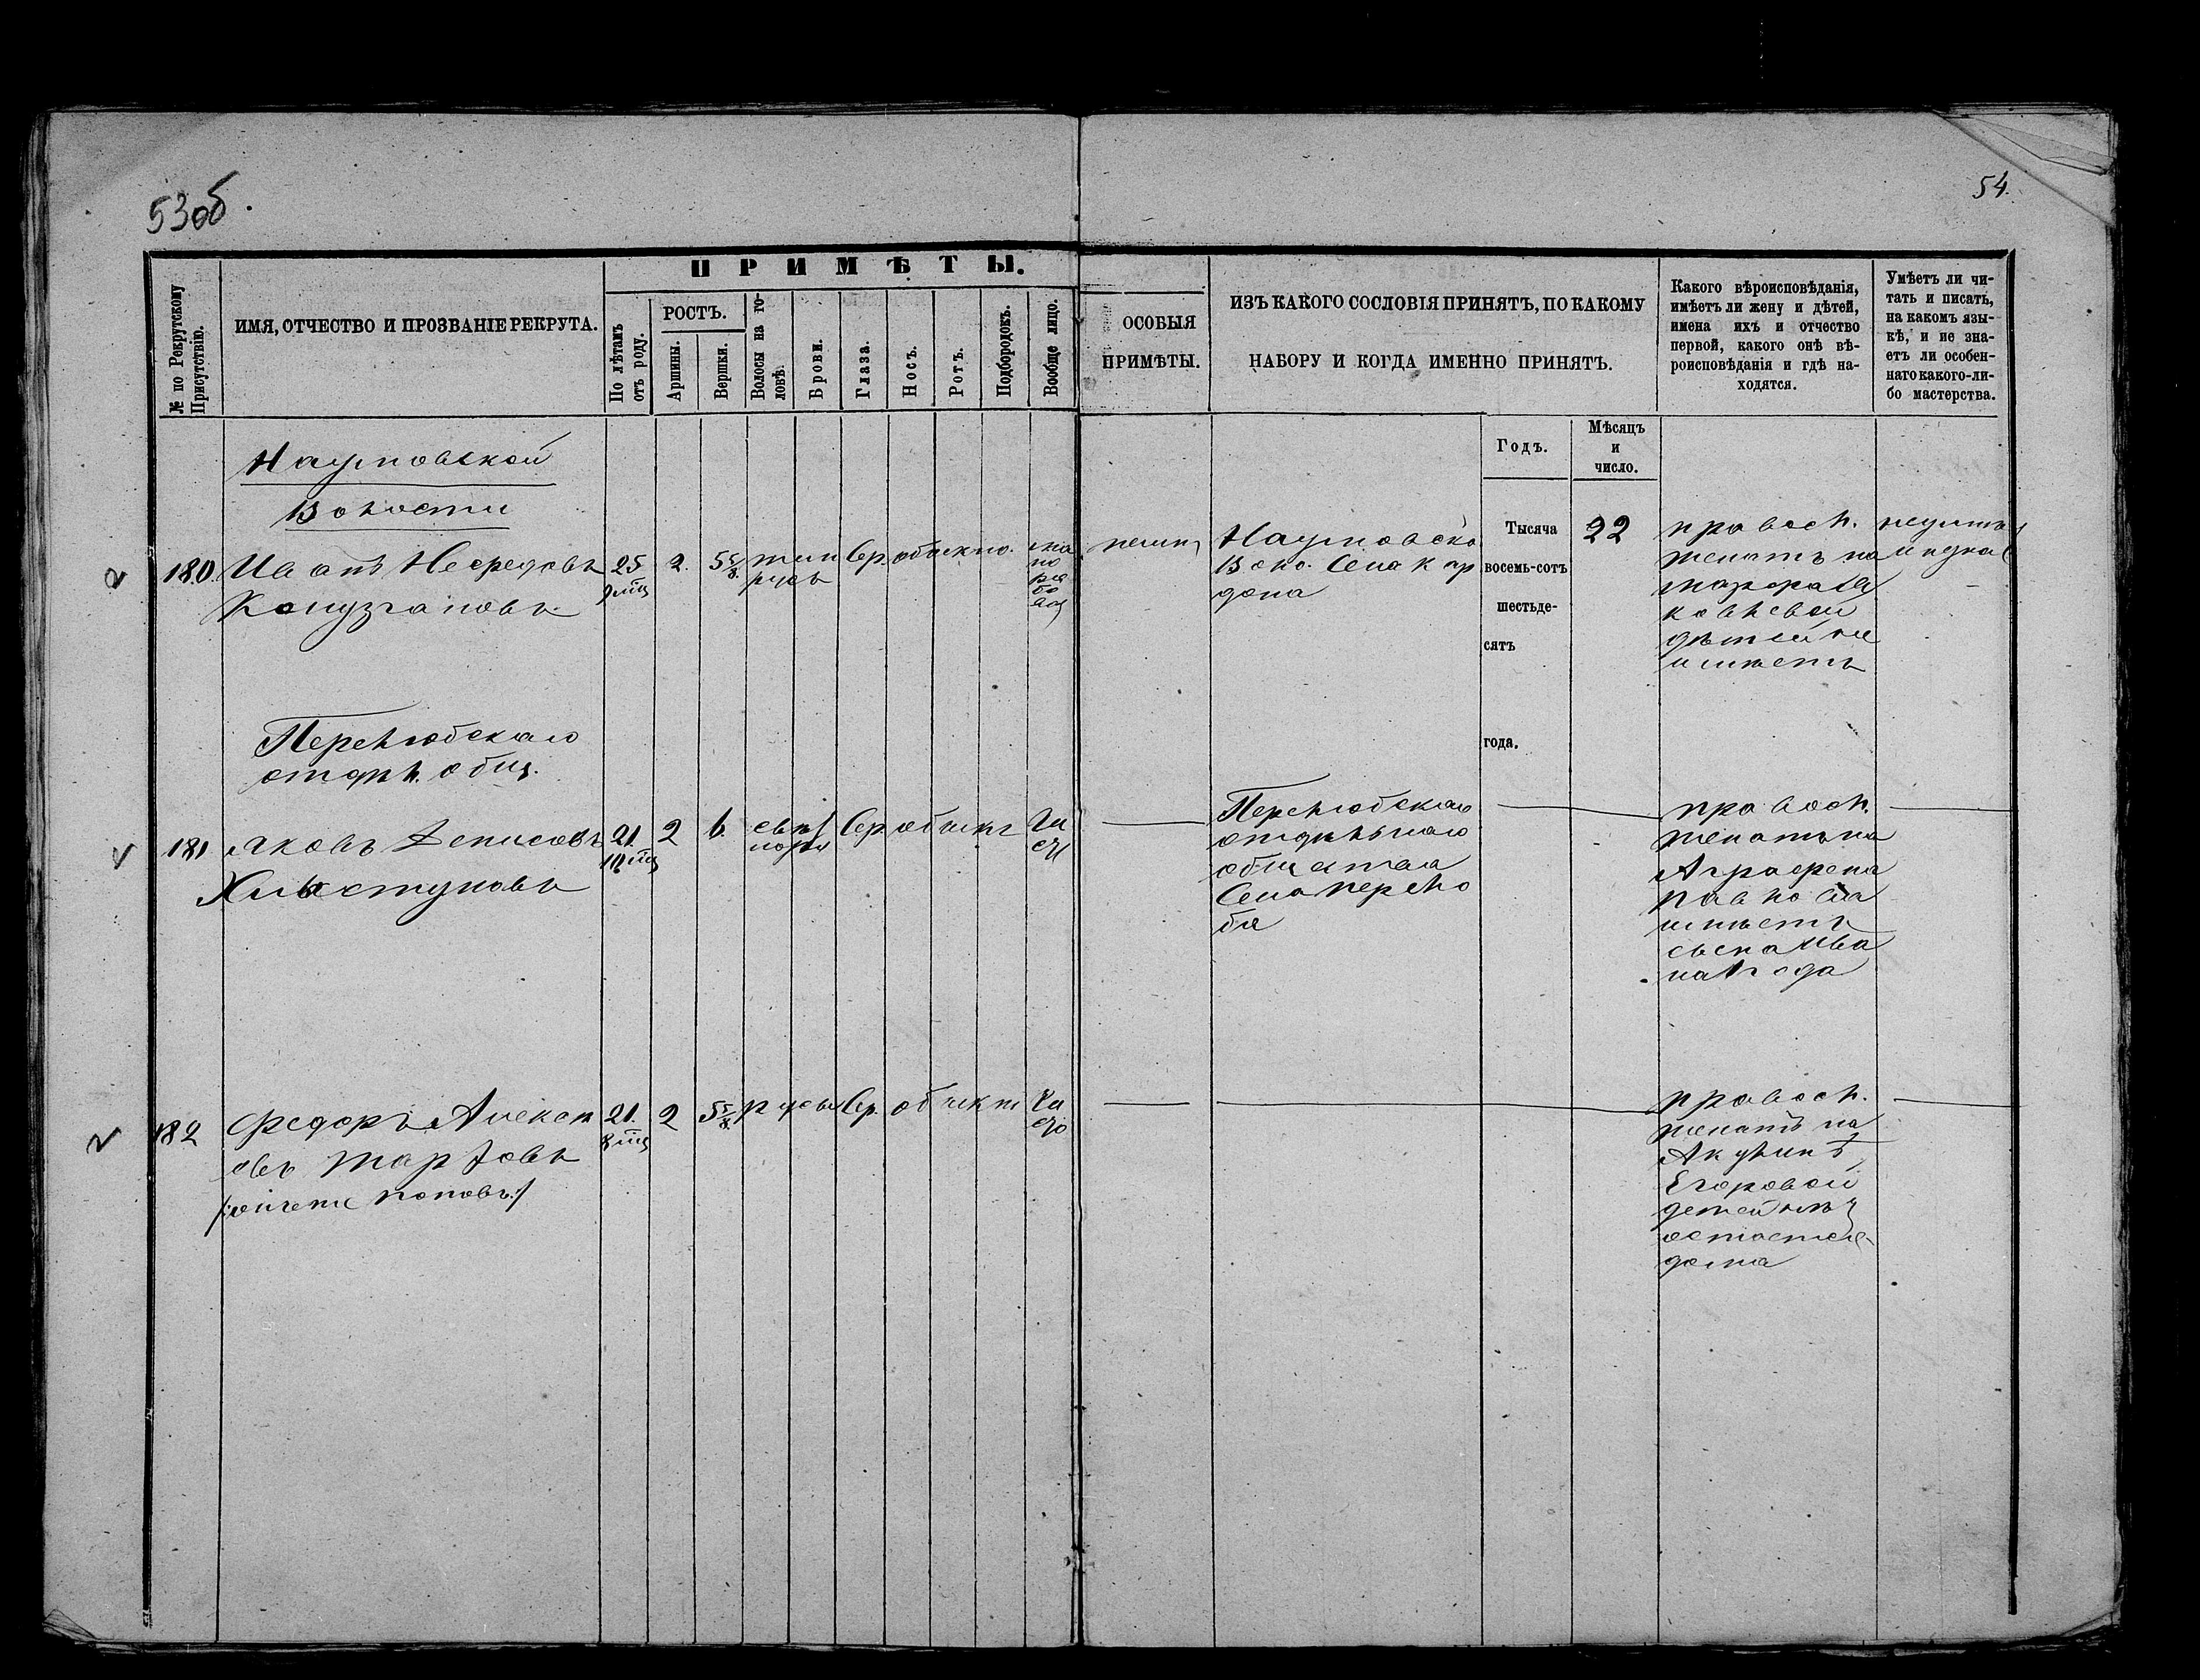 53об.
54.
№ по Рекрутскому Присутствію.
ИМЯ, ОТЧЕСТВО И ПРОЗВАНІЕ РЕКРУТА.
ПРИМѢТЫ.
По лѣтамъ отъ роду.
РОСТЪ.
Аршины.
Вершки.
Волосы на го-
ловѣ.
Брови.
Глаза.
Носъ.
Ротъ.
Подбородокъ.
Вообще лицо.
ОСОБЫЯ
ПРИМѢТЫ.
ИЗЪ КАКОГО СОСЛОВІЯ ПРИНЯТЪ, ПО КАКОМУ
НАБОРУ И КОГДА ИМЕННО ПРИНЯТЪ.
Какого вѣроисповѣданія,
имѣетъ ли жену и дѣтей,
имена ихъ и отчество
первой, какого онѣ вѣ-
роисповѣданія и гдѣ на-
ходятся.
Умѣетъ ли чи-
тать и писать,
на какомъ язы-
кѣ, и не зна-
етъ ли особен-
наго какого-ли-
бо мастерства.
Годъ.
Мѣсяцъ
и
число.
Наумовской
Волости
180. Иванъ Нефедовъ
25 2. 5 5/8 Сер. обыкно.
Наумовско
Воло. Села Кар
дона
Тысяча
восемь-сотъ
шестьде-
сятъ
года.
22
правосл.
женатъ на
дѣтей не
имѣетъ
Перелюбскаго
отдѣл. общ.
181 Яковъ Денисовъ
Хлыстуновъ
21 2 6. Сер обыкн
Перелюбскаго
отдѣльнаго
общества
Села Перелю
ба
правосл.
женатъ на
Аграфена
Павлова
имѣетъ
сына Ива
на 1 года
182 Федоръ Алексѣ
евъ
21. 2 5 5/8 русы Сер. обыкн
правосл.
женатъ на
Акулинѣ
Егоровой
детей нѣтъ
остается
дома